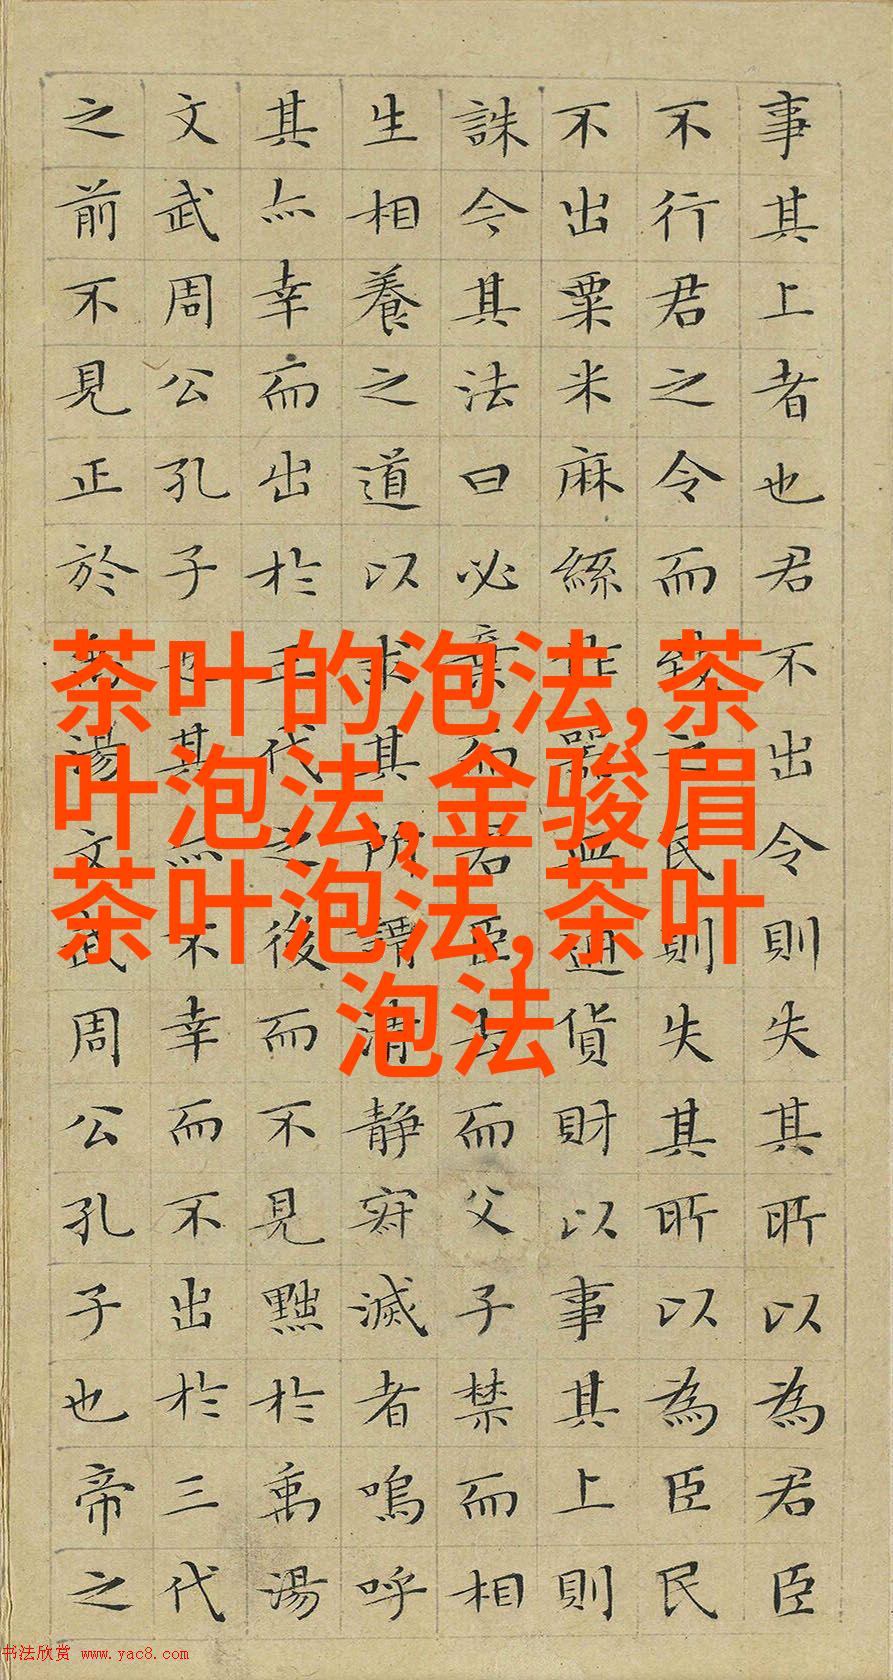 事其上者也君不出令則失其所以為君臣
不行君之令而致之民則失其所以為臣民
不出粟米麻絲作器皿通貨財以事其上則
誅今其法曰必棄而君臣去而父子禁而相
生相養之道以求其所謂清静寂滅者嗚呼
其亦幸而出於三代之後而不見黜於禹湯
文武周公孔子也其亦不幸而不出於三代
之前不見正於禹湯文武周公孔子也帝之
茶叶的泡法,茶
叶泡法,金骏眉
茶叶泡法,茶叶
泡法
书法欣赏 www.yac8.com